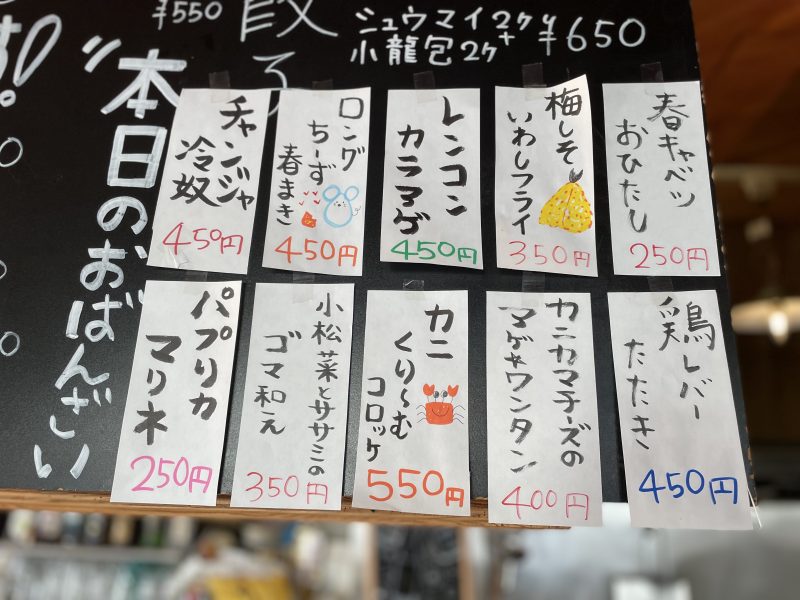 ¥550
餃子
シュウマイ2ケ+
小龍包2ケ
¥650
本日のおばんざい
春キャベツ
おひたし
250円
梅しそ
いわしフライ
350円
レンコン
カラマゲ
450円
ロング
ちーず
春まき
450円
チャンジャ
冷奴
450円
鶏レバー
たたき
450円
カニカマチーズの
マゲキワンタン
400円
カニ
くり〜む
コロッケ
550円
小松菜とササミの
ゴマ和え
350円
パプリカ
マリネ
250円